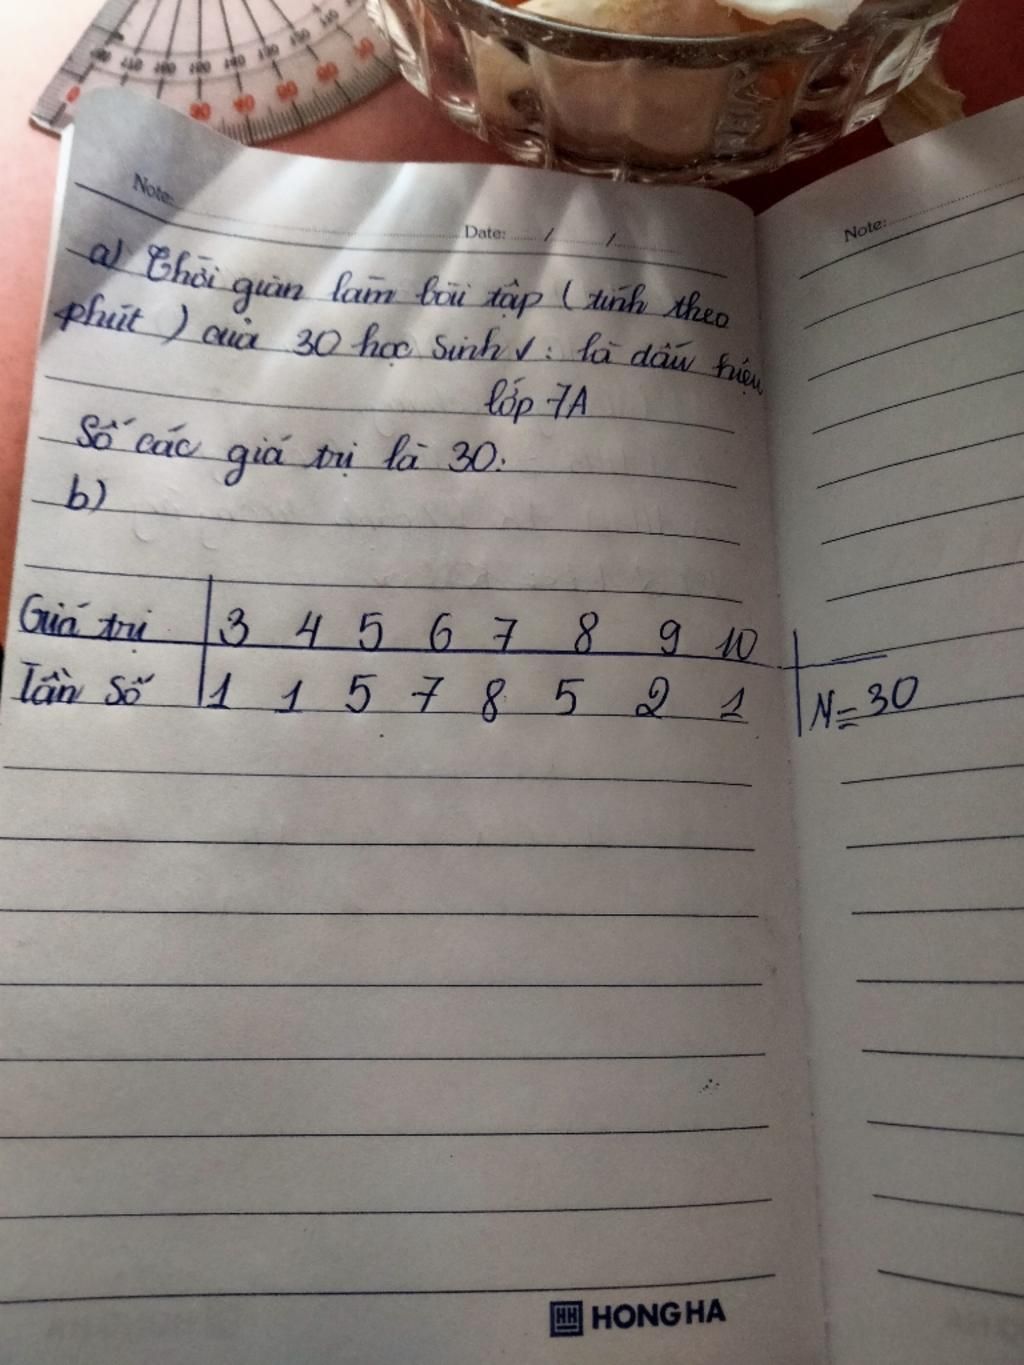 Note:
Date: / /
Note:
a) Thời gian làm bài tập ( tính theo
phút ) của 30 học sinh √ : là dấu hiệu
lớp 7A
Số các giá trị là 30.
b)
Giá trị 3 4 5 6 7 8 9 10
Tần số 1 1 5 7 8 5 2 1 N = 30
HONG HA